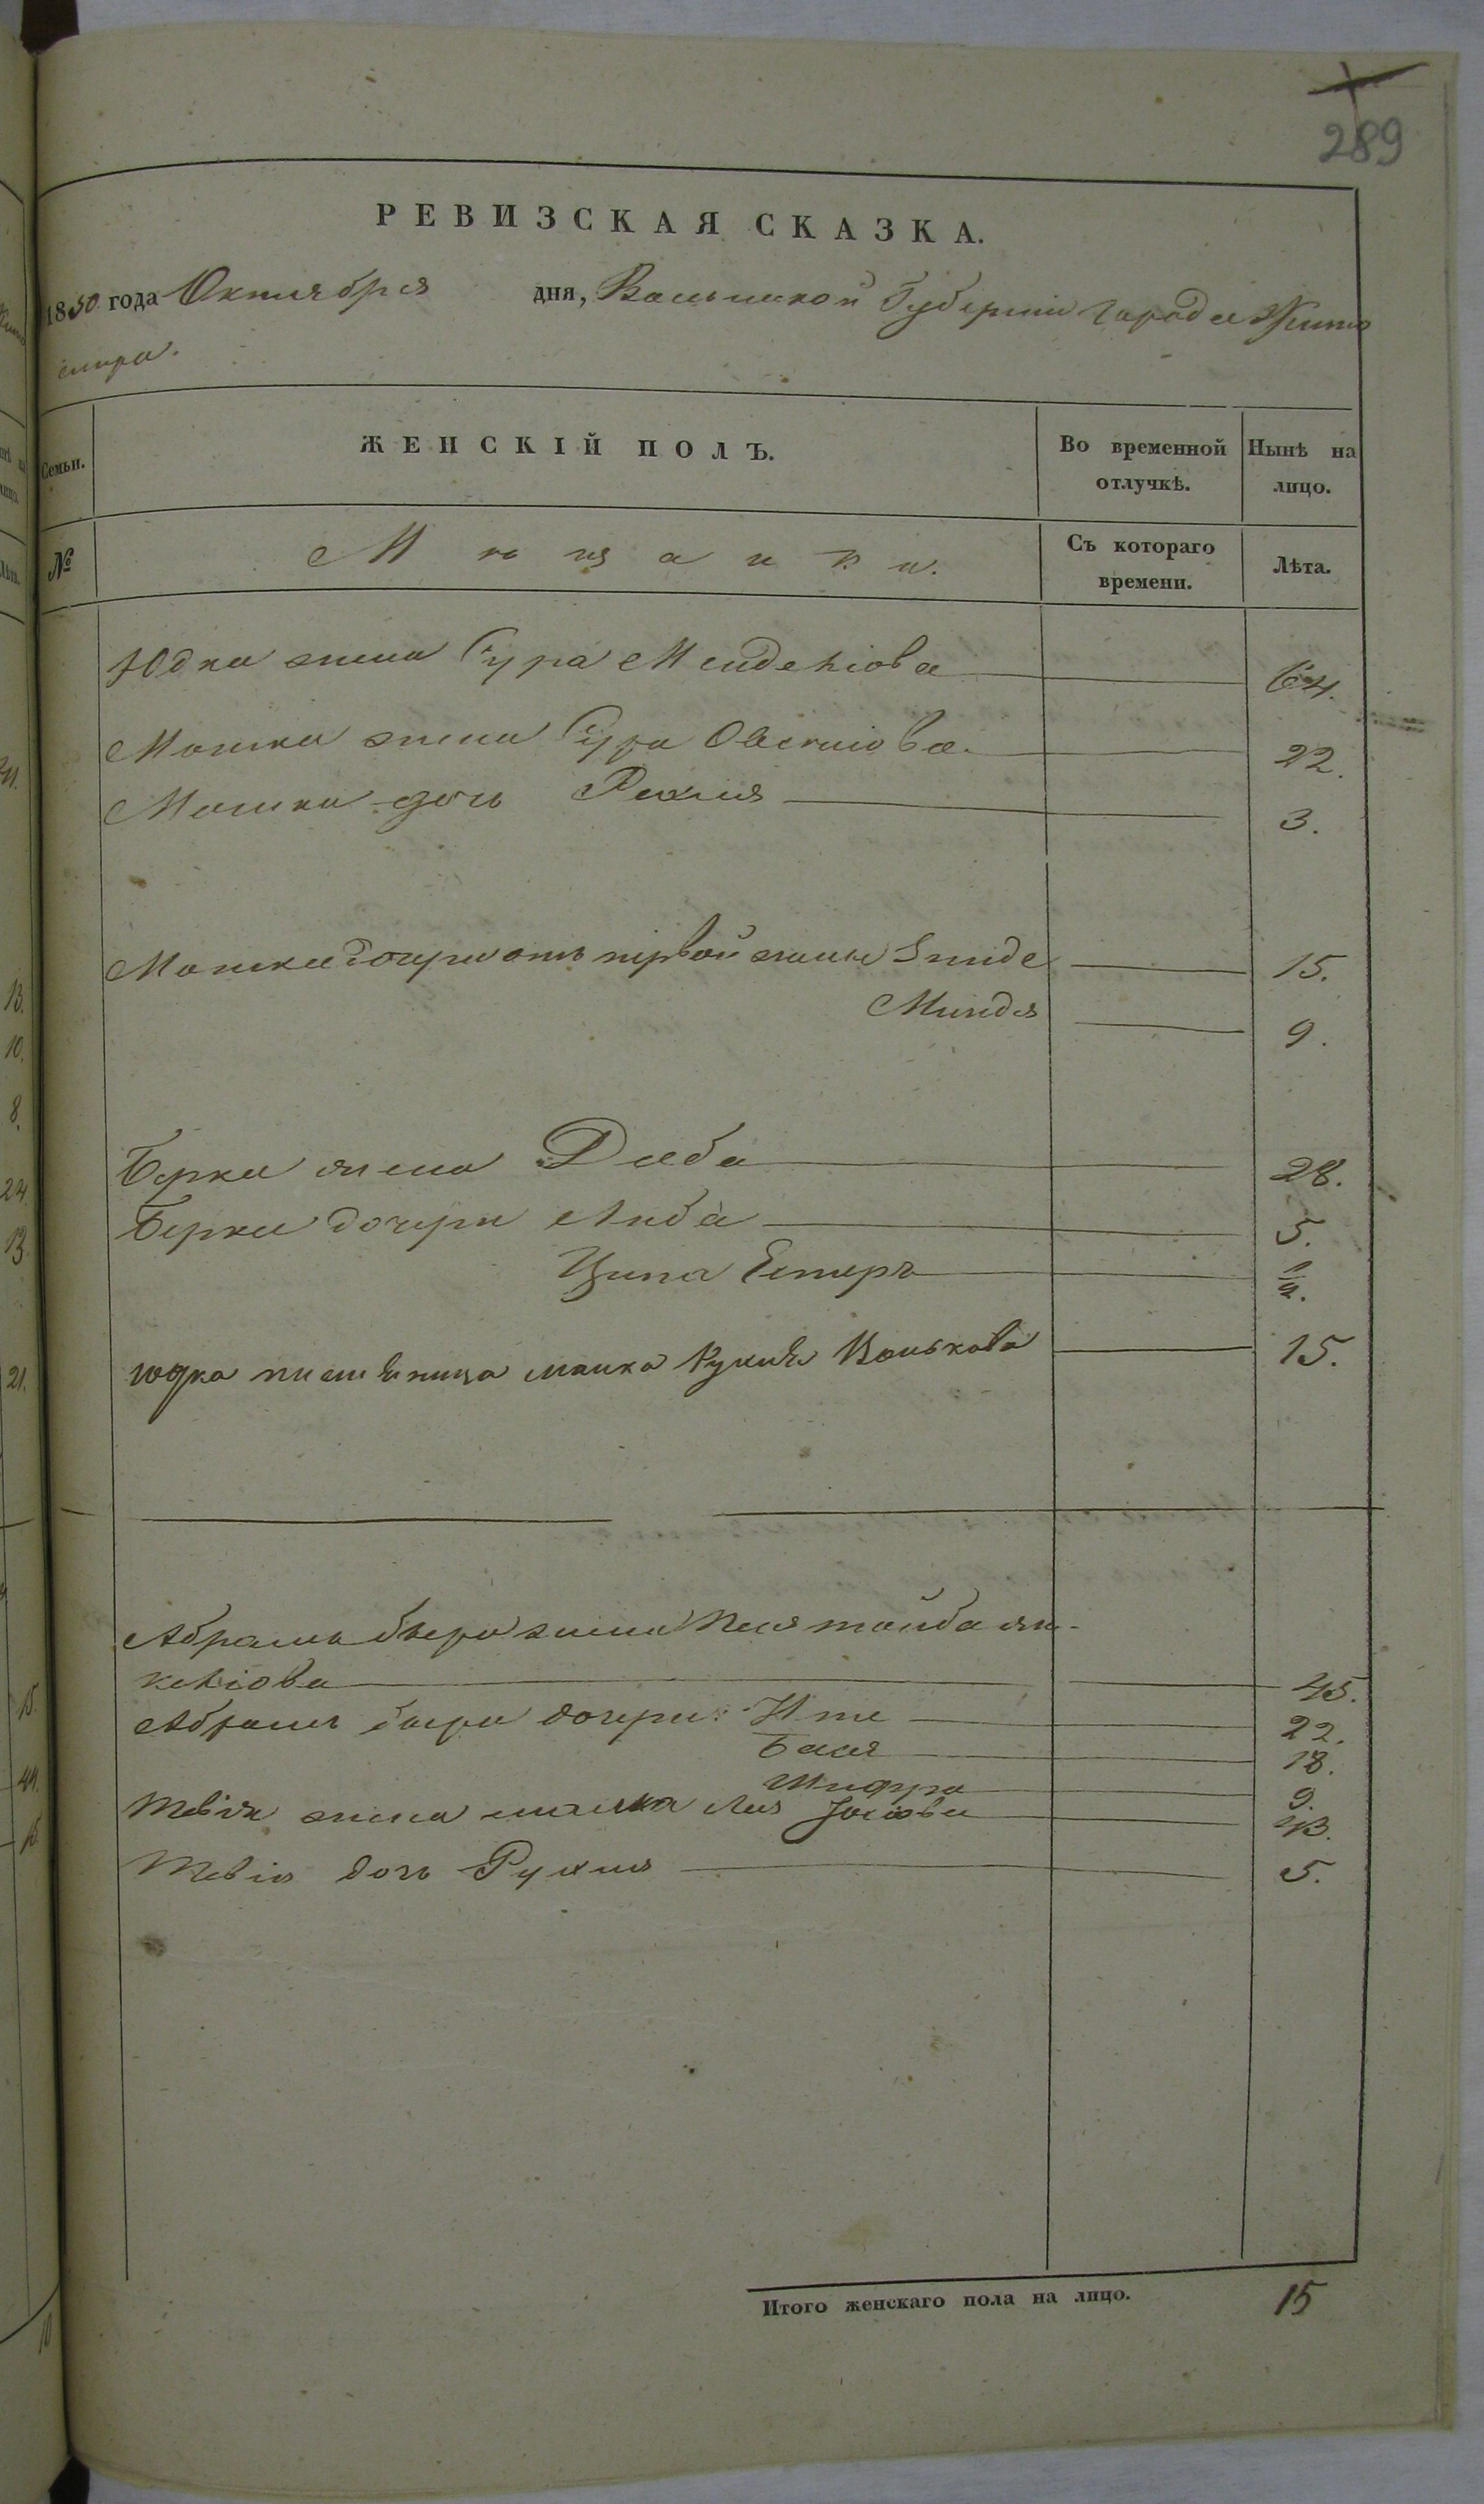 289
РЕВИЗСКАЯ СКАЗКА.
1850 года Октября дня, Волынской Губернии города Жито
мира.
Семьи.
ЖЕНСКІЙ ПОЛЪ.
Во временной отлучкѣ.
Нынѣ на лицо.
№
Мѣщанки.
Съ котораго времени.
Лѣта.
Юдка жена Сура Менделіова 64.
Мошка жена Сура 22.
Мошка дочь Рехля 3.
Мошка дочери отъ первой жены 15.
Миндя 9.
Берка жена Двба 28.
Берка дочери Либа 5.
Ципа Естеръ 1/2.
юдка племѣница малка 15.
Абрамъ бера жена Песя тойба ян-
келіова 45.
Абрамъ бера дочери: Ите 22.
Бася 18.
Шифра 9.
Тевія жена малка Лея Іосіова 43.
Тевія дочь Рухля 5.
Итого женскаго пола на лицо. 15